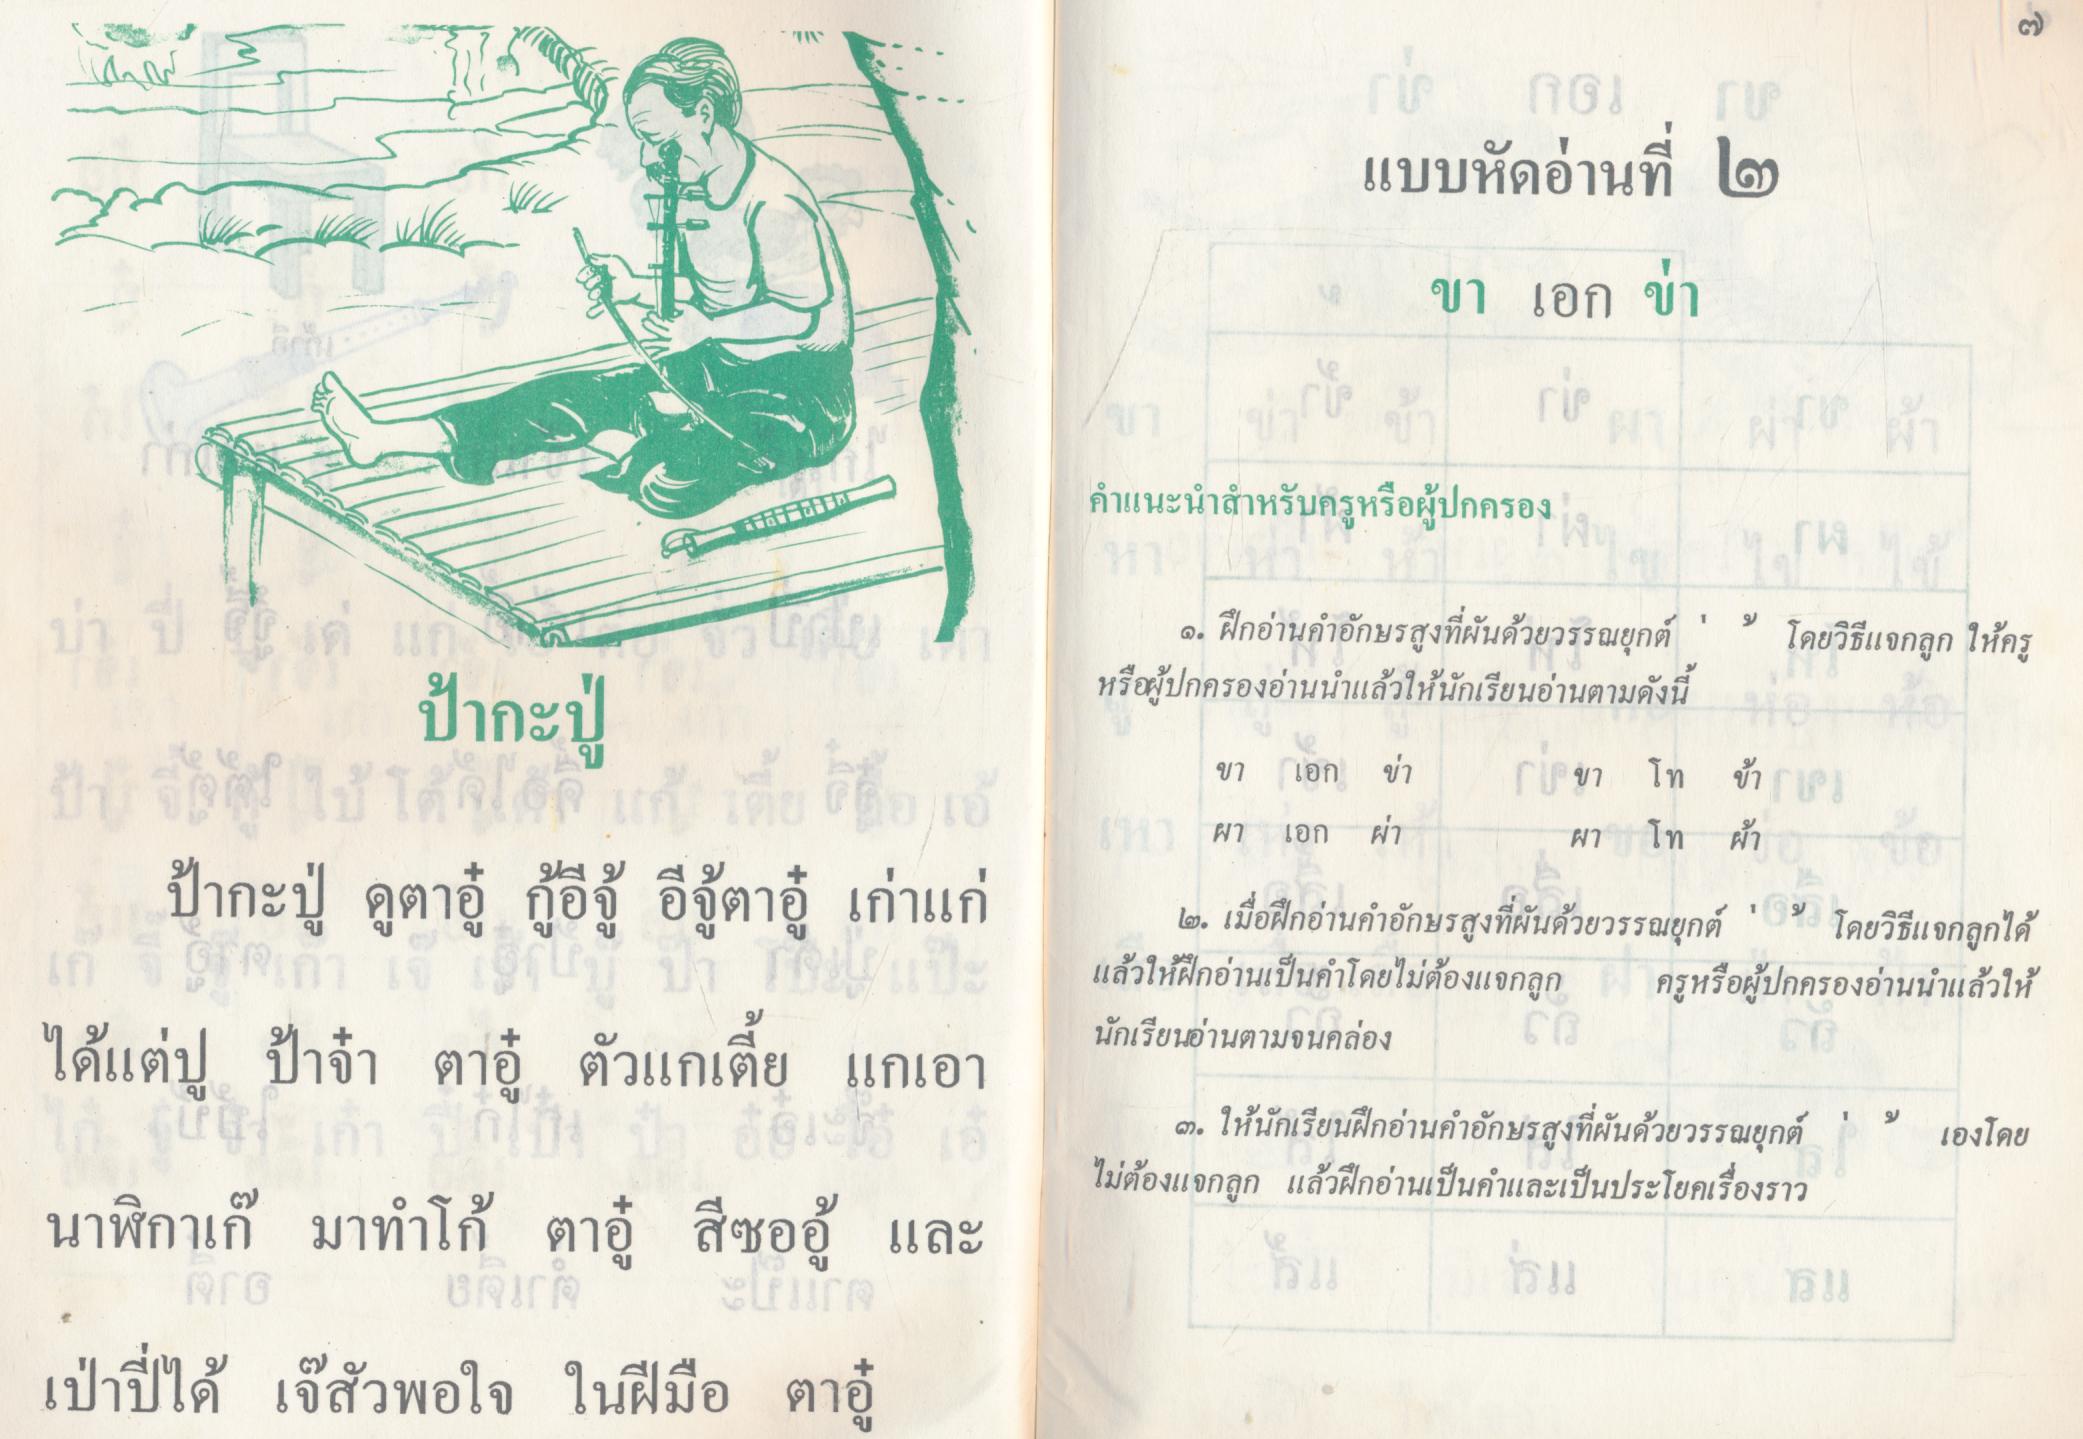 ป้ากะปู่
ป้ากะปู่ ดูตาอู๋ กู้อีจู้ อีจู้ตาอู๋ เก่าแก่
ได้แต่ปู ป้าจ๋า ตาอู๋ ตัวแกเตี้ย แกเอา
นาฬิกาเก๊ มาทำโก้ ตาอู๋ สีซออู้ และ
เป่าปี่ได้ เจ๊สัวพอใจ ในฝีมือ ตาอู๋
๗
แบบหัดอ่านที่ ๒
ขา เอก ข่า
คำแนะนำสำหรับครูหรือผู้ปกครอง
๑. ฝึกอ่านคำอักษรสูงที่ผันด้วยวรรณยุกต์ ่ ้ โดยวิธีแจกลูก ให้ครู
หรือผู้ปกครองอ่านนำแล้วให้นักเรียนอ่านตามดังนี้
ขา เอก ข่า ขา โท ข้า
ผา เอก ผ่า ผา โท ผ้า
๒. เมื่อฝึกอ่านคำอักษรสูงที่ผันด้วยวรรณยุกต์ ่ ้ โดยวิธีแจกลูกได้
แล้วให้ฝึกอ่านเป็นคำโดยไม่ต้องแจกลูก ครูหรือผู้ปกครองอ่านนำแล้วให้
นักเรียนอ่านตามจนคล่อง
๓. ให้นักเรียนฝึกอ่านคำอักษรสูงที่ผันด้วยวรรณยุกต์ ่ ้ เองโดย
ไม่ต้องแจกลูก แล้วฝึกอ่านเป็นคำและเป็นประโยคเรื่องราว